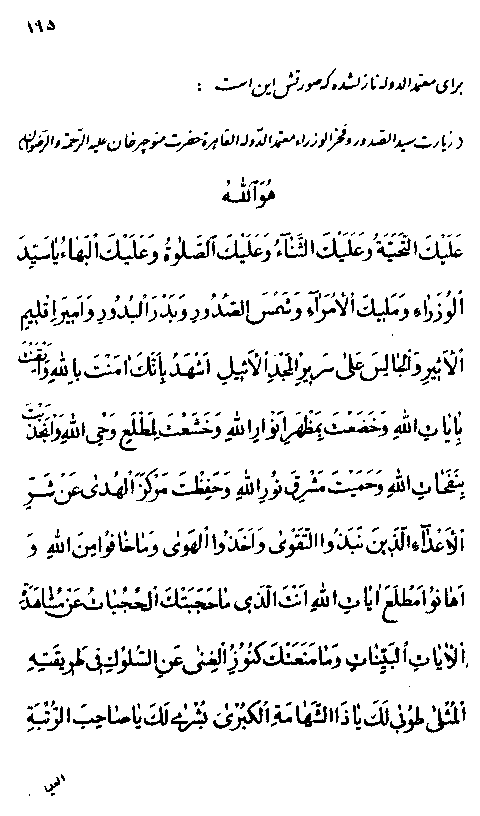 ۱۶۵
برای معتمدالدوله نازلشده که صورتش این است :
(زیارت سیدالصدور و فخرالوزراء معتمدالدوله القاهرة حضرت منوچهرخان علیه الرحمة والرضوان)
هُوَاللهُ
عَلَیْكَ التَّحِیَّةُ وَ عَلَیْكَ الثَّنَآءُ وَ عَلَیْكَ الصَّلٰوةُ وَ عَلَیْكَ الْبَهَاءُ یَا سَیِّدَ
الْوُزَرَاءِ وَ مَلِیكَ الْاُمَرَآءِ وَ شَمْسَ الصُّدُورِ وَ بَدْرَ الْبُدُورِ وَ اَمِیرَ اِقْلِیمِ
الْاَثِیرِ وَ الْجَالِسَ عَلٰی سَرِیرِ الْمَجْدِ الْاَثِیلِ اَشْهَدُ بِاَنَّكَ اٰمَنْتَ بِاللهِ وَ اَیْقَنْتَ
بِاٰیَاتِ اللهِ وَ خَضَعْتَ بِمَظْهَرِ اَنْوَارِ اللهِ وَ خَشَعْتَ لِمَطْلَعِ وَحْیِ اللهِ وَ انْجَذَبْتَ
بِنَفَحَاتِ اللهِ وَ حَمَیْتَ مَشْرِقَ نُورِ اللهِ وَ حَفِظْتَ مَرْكَزَ الْهُدٰی عَنْ شَرِّ
الْاَعْدَآءِ الَّذِینَ نَبَذُوا التَّقْوٰی وَ اَخَذُوا الْهَوٰی وَ مَا خَافُوا مِنَ اللهِ وَ
اَهَانُوا مَطْلَعَ اٰیَاتِ اللهِ اَنْتَ الَّذِی مَا حَجَبَتْكَ الْحُجُبَاتُ عَنْ مُشَاهَدَةِ
الْاٰیَاتِ الْبَیِّنَاتِ وَ مَا مَنَعَتْكَ كُنُوزُ الْغِنٰی عَنِ السُّلُوكِ فِی طَرِیقَتِهِ
الْمُثْلٰی طُوبٰی لَكَ یَا ذَا الشَّهَامَةِ الْكُبْرٰی بُشْرٰی لَكَ یَا صَاحِبَ الرُّتْبَةِ
العلیا